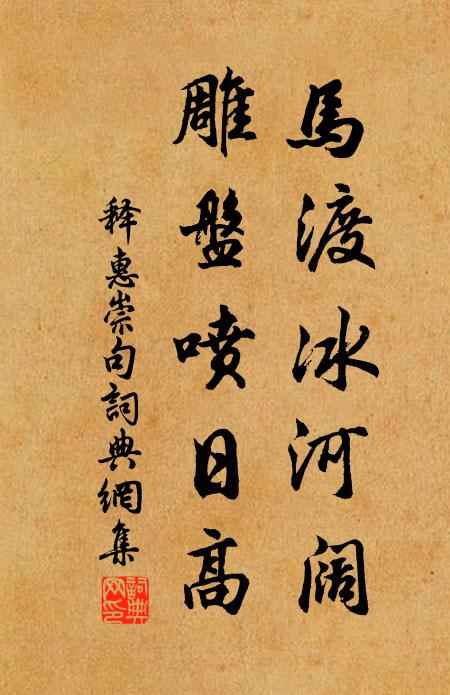 馬渡冰河阔
雕盤噴日高
释惠崇句詞典網集
詞典网印